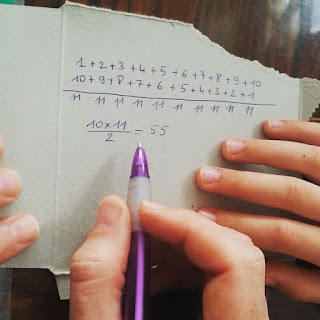 1 + 2 + 3 + 4 + 5 + 6 + 7 + 8 + 9 + 10
10 + 9 + 8 + 7 + 6 + 5 + 4 + 3 + 2 + 1
11 11 11 11 11 11 11 11 11 11
10 × 11
2
= 55